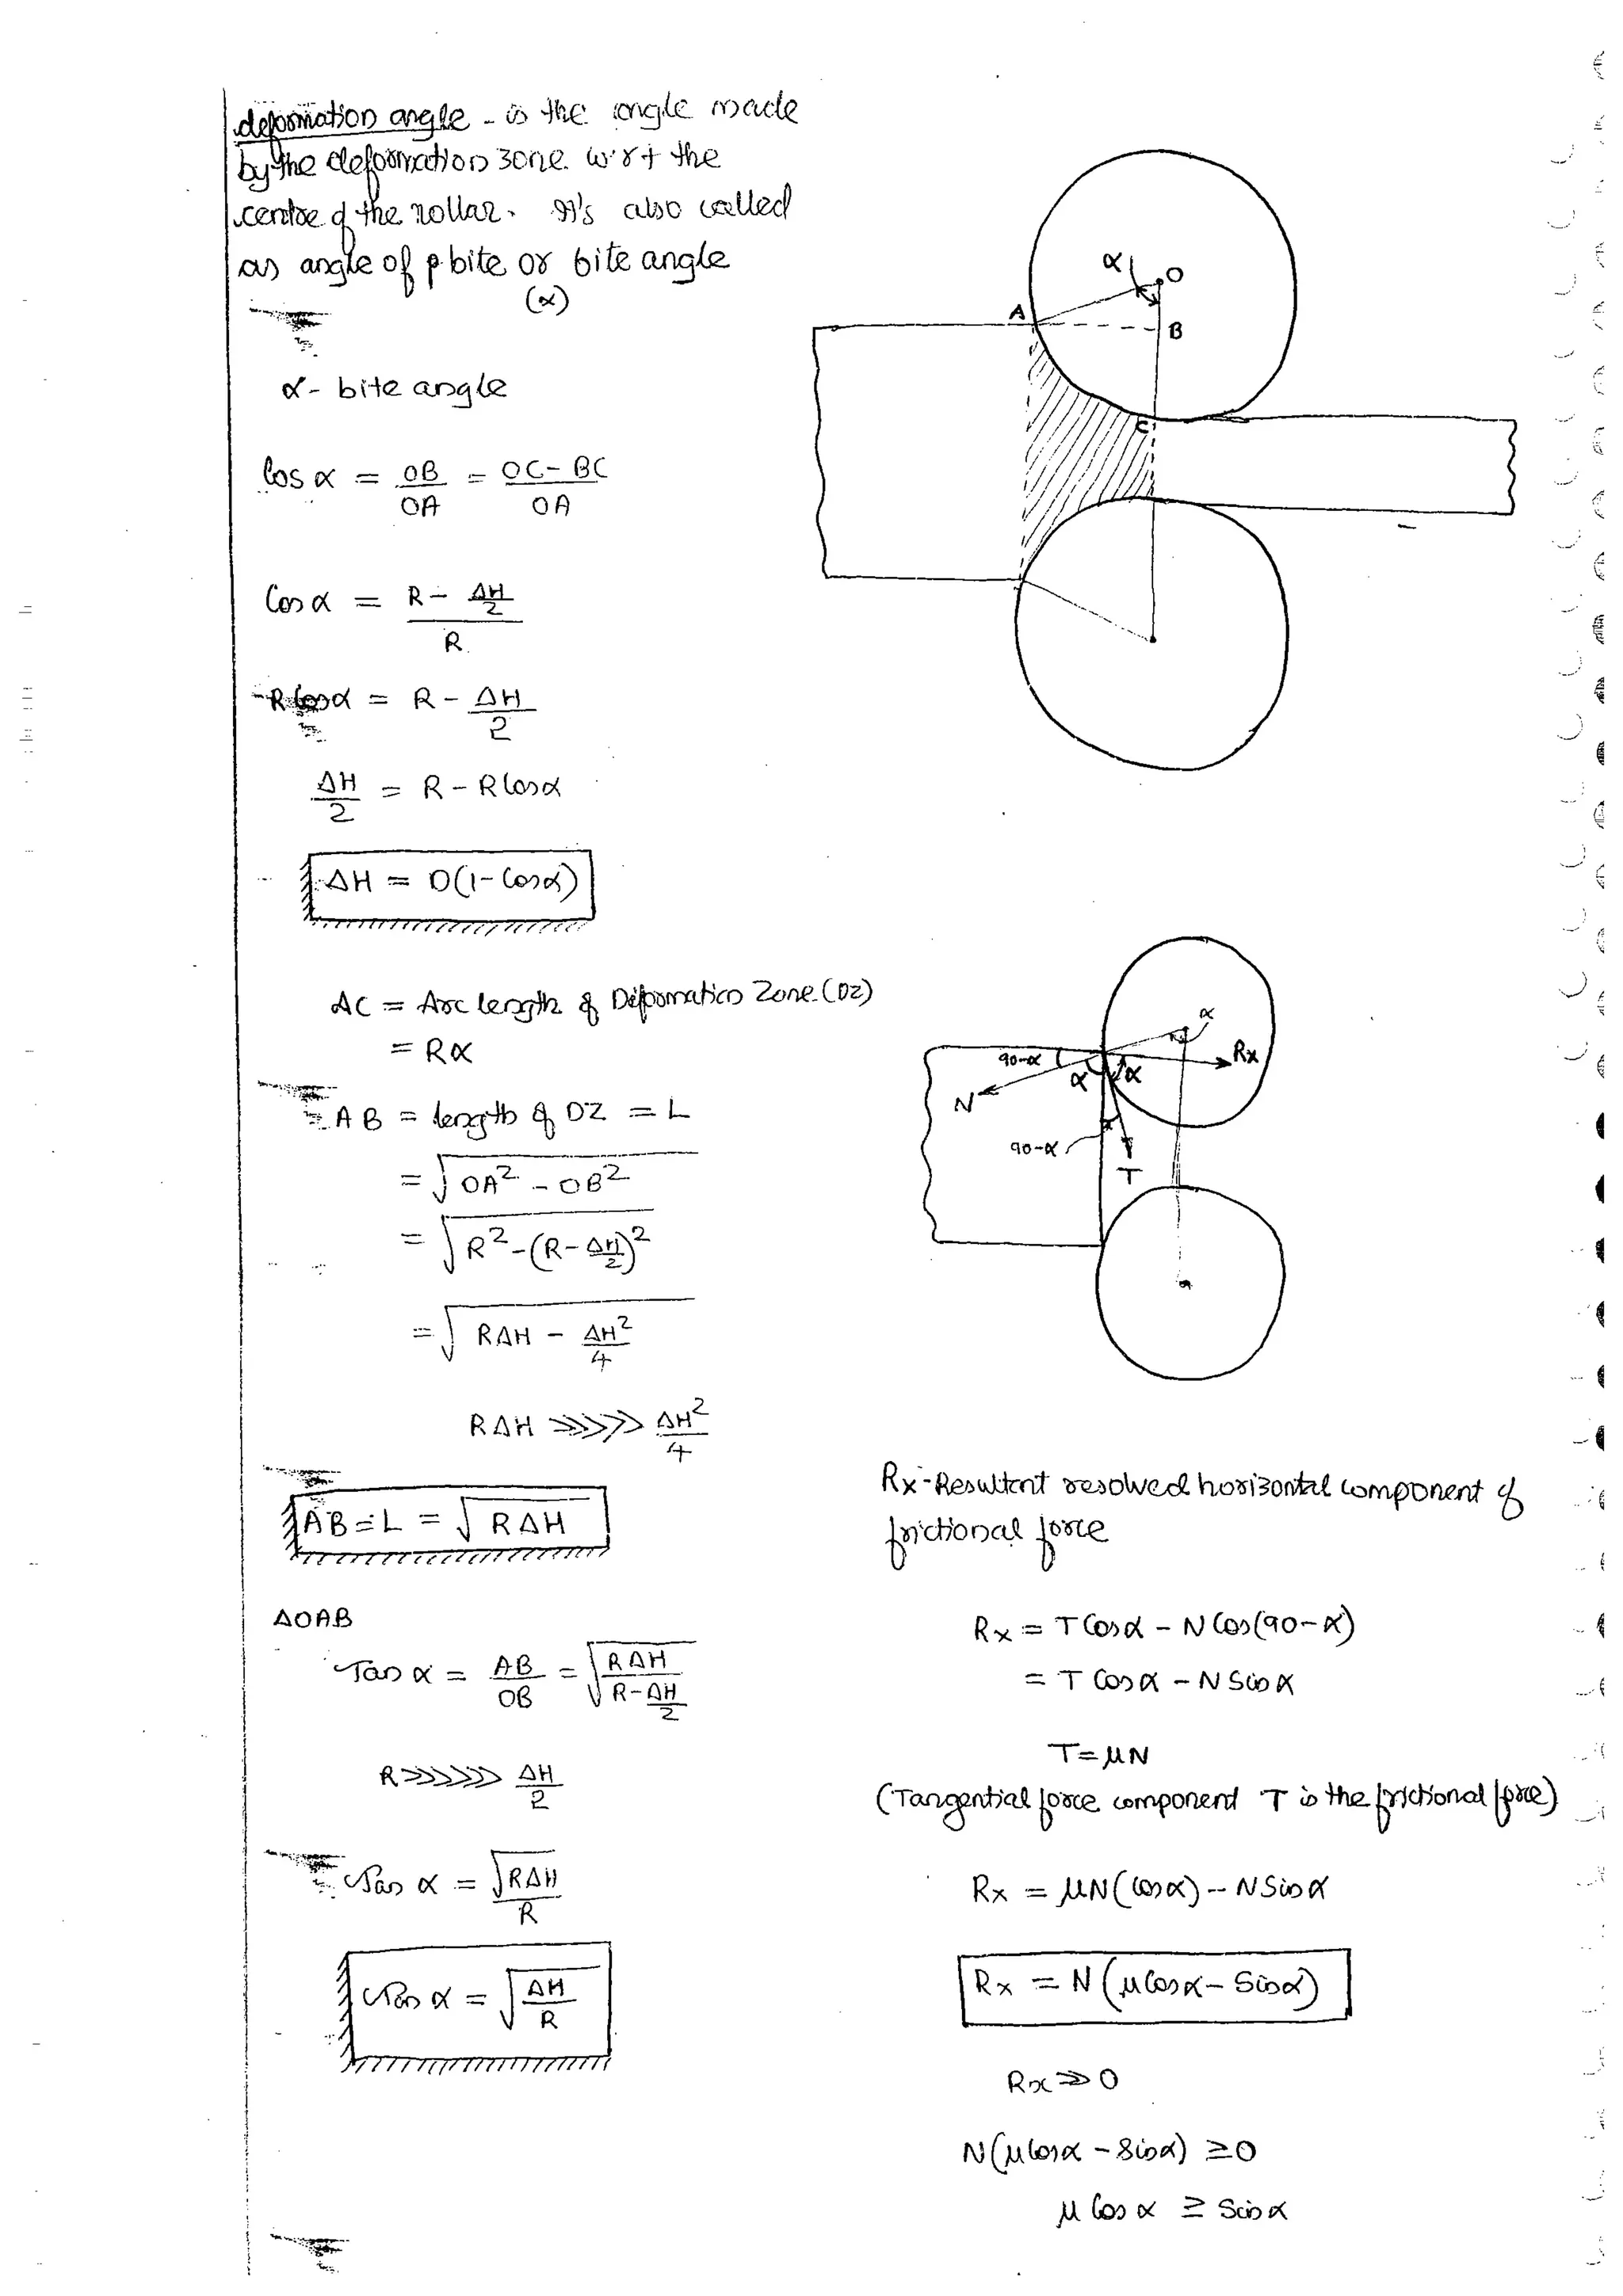 deformation angle - is the angle made
by the deformation zone w.r.t the
centre of the rollar. It's also called
as angle of bite or bite angle
(α)
α - bite angle
Cos α = OB/OA = OC-BC/OA
Cos α = (R - ΔH/2)/R
R Cos α = R - ΔH/2
ΔH/2 = R - R Cos α
ΔH = D(1-Cos α)
AC = Arc length of Deformation Zone (DZ)
= Rα
AB = length of DZ = L
= √(OA² - OB²)
= √(R² - (R - ΔH/2)²)
= √(RΔH - ΔH²/4)
RΔH >>>>> ΔH²/4
AB = L = √RΔH
ΔOAB
Tan α = AB/OB = √(RΔH/(R-ΔH/2))
R >>>>>> ΔH/2
Tan α = √RΔH/R
Tan α = √(ΔH/R)
α
O
A
B
C
α
90-α
Rx
α
α
N
90-α
T
Rx - Resultant resolved horizontal component of
frictional force
Rx = T Cos α - N Cos(90-α)
= T Cos α - N Sin α
T = μN
(Tangential force component T is the frictional force)
Rx = μN(Cos α) - N Sin α
Rx = N(μ Cos α - Sin α)
Rx >> 0
N(μ Cos α - Sin α) ≥ 0
μ Cos α ≥ Sin α